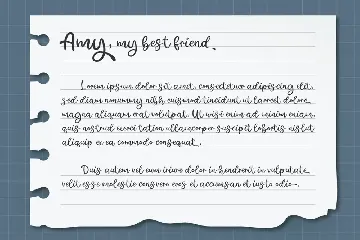 Amy, my best friend.
Lorem ipsum dolor sit amet, consectetur adipiscing elit,
sed diam nonummy nibh euismod tincidunt ut laoreet dolore
magna aliquam erat volutpat. Ut wisi enim ad minim veniam,
quis nostrud exerci tation ullamcorper suscipit lobortis nisl ut
aliquip ex ea commodo consequat.
Duis autem vel eum iriure dolor in hendrerit in vulputate
velit esse molestie consequat eros et accumsan et iusto odio.